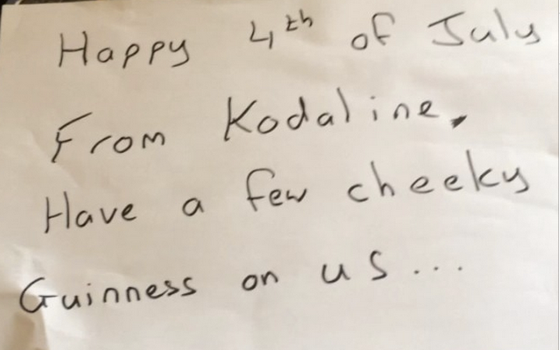 Happy 4th of July
From Kodaline.
Have a few cheeky
Guinness on us...